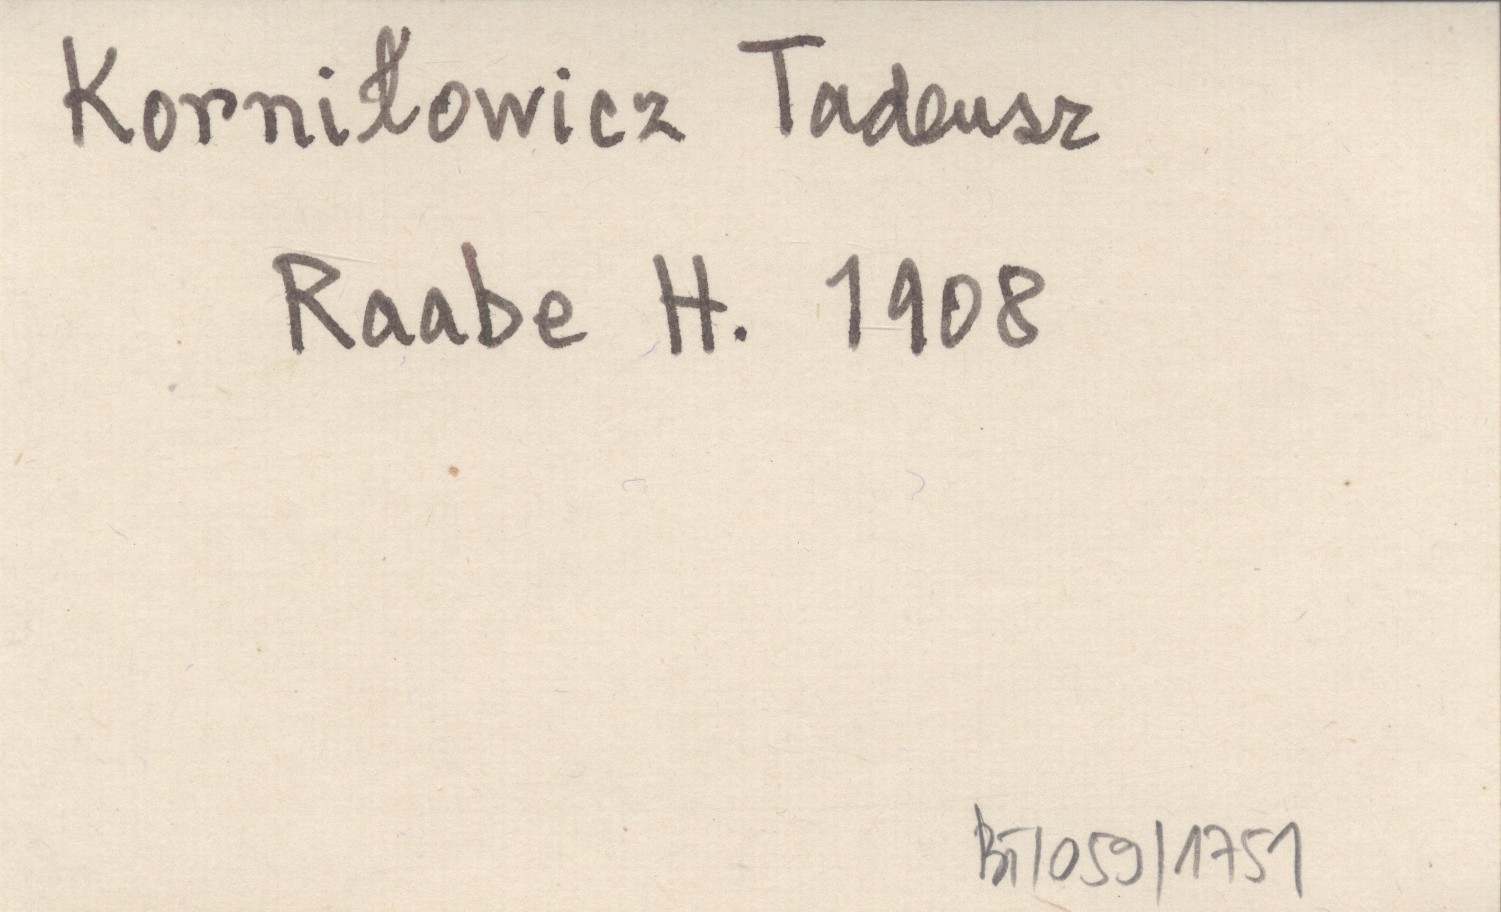 Korniłowicz Tadeusz
Raabe H. 1908
BI/059/1751